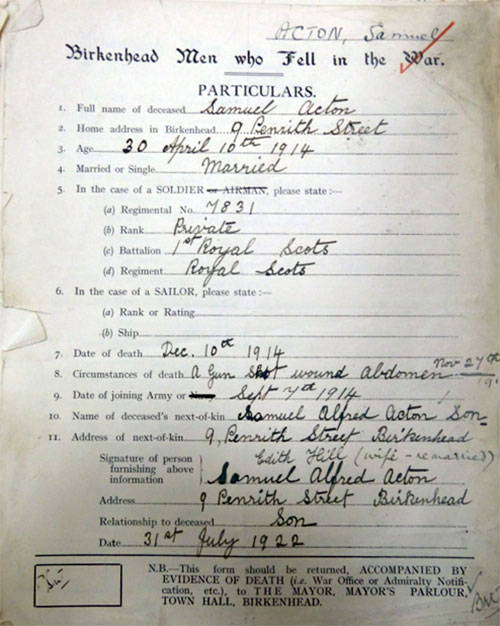 ACTON, Samuel
Birkenhead Men who Fell in the War.
PARTICULARS.
1. Full name of deceased Samuel Acton
2. Home address in Birkenhead 9 Penrith Street
3. Age 30 April 10th 1914
4. Married or Single Married
5. In the case of a SOLDIER or AIRMAN, please state:—
(a) Regimental No. 7831
(b) Rank Private
(c) Battalion 1st Royal Scots
(d) Regiment Royal Scots
6. In the case of a SAILOR, please state:—
(a) Rank or Rating
(b) Ship
7. Date of death Dec. 10th 1914
Nov 27th
8. Circumstances of death A Gun Shot wound Abdomen
9. Date of joining Army or Navy Sept 7th 1914
10. Name of deceased's next-of-kin Samuel Alfred Acton Son
11. Address of next-of-kin 9, Penrith Street Birkenhead
Edith Hill (wife - remarried)
Signature of person
furnishing above
information Samuel Alfred Acton
Address 9 Penrith Street Birkenhead
Relationship to deceased Son
Date 31st July 1922
N.B.—This form should be returned, ACCOMPANIED BY
EVIDENCE OF DEATH (i.e. War Office or Admiralty Notifi-
cation, etc.), to THE MAYOR, MAYOR'S PARLOUR,
TOWN HALL, BIRKENHEAD.